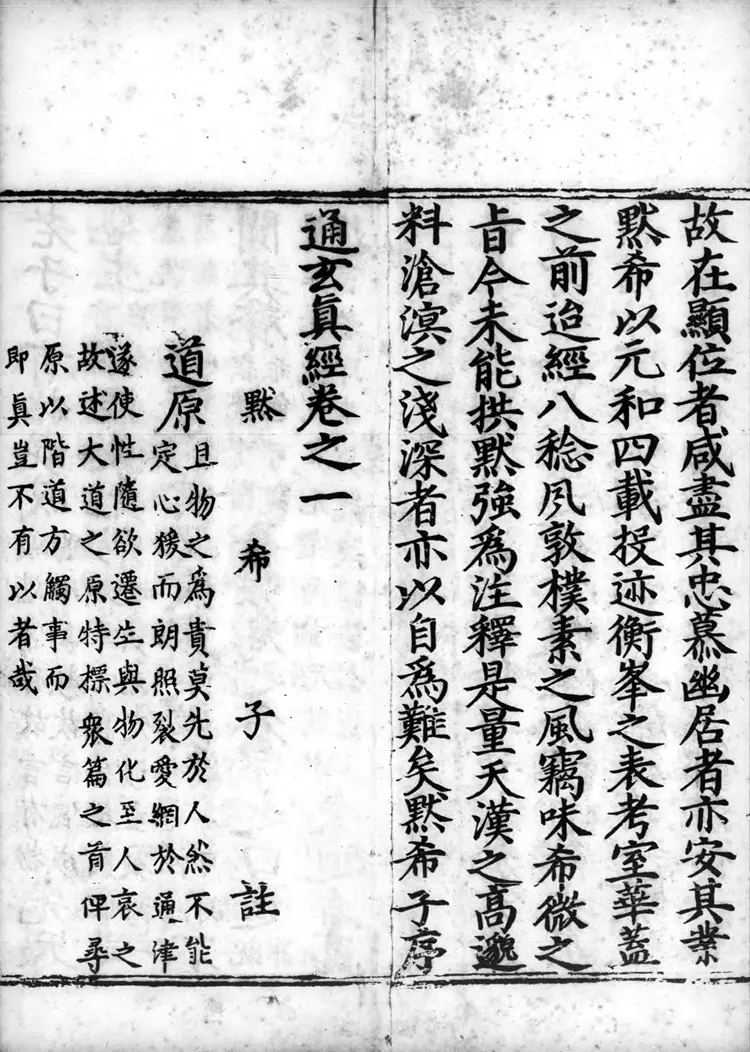 故在顯位者咸盡其忠慕幽居者亦安其業
默希以元和四載投迹衡峯之表考室華蓋
之前迨經八稔夙敦樸素之風竊味希微之
旨今未能拱默強為注釋是量天漢之高邈
料滄溟之淺深者亦以自為難矣默希子序
通玄眞經卷之一
默希子註
道原
且物之為貴莫先於人然不能
定心猨而朗照裂愛網於通津
遂使性隨欲遷生與物化至人哀之
故述大道之原特標衆篇之首俾尋
原以階道方觸事而
即眞豈不有以者哉